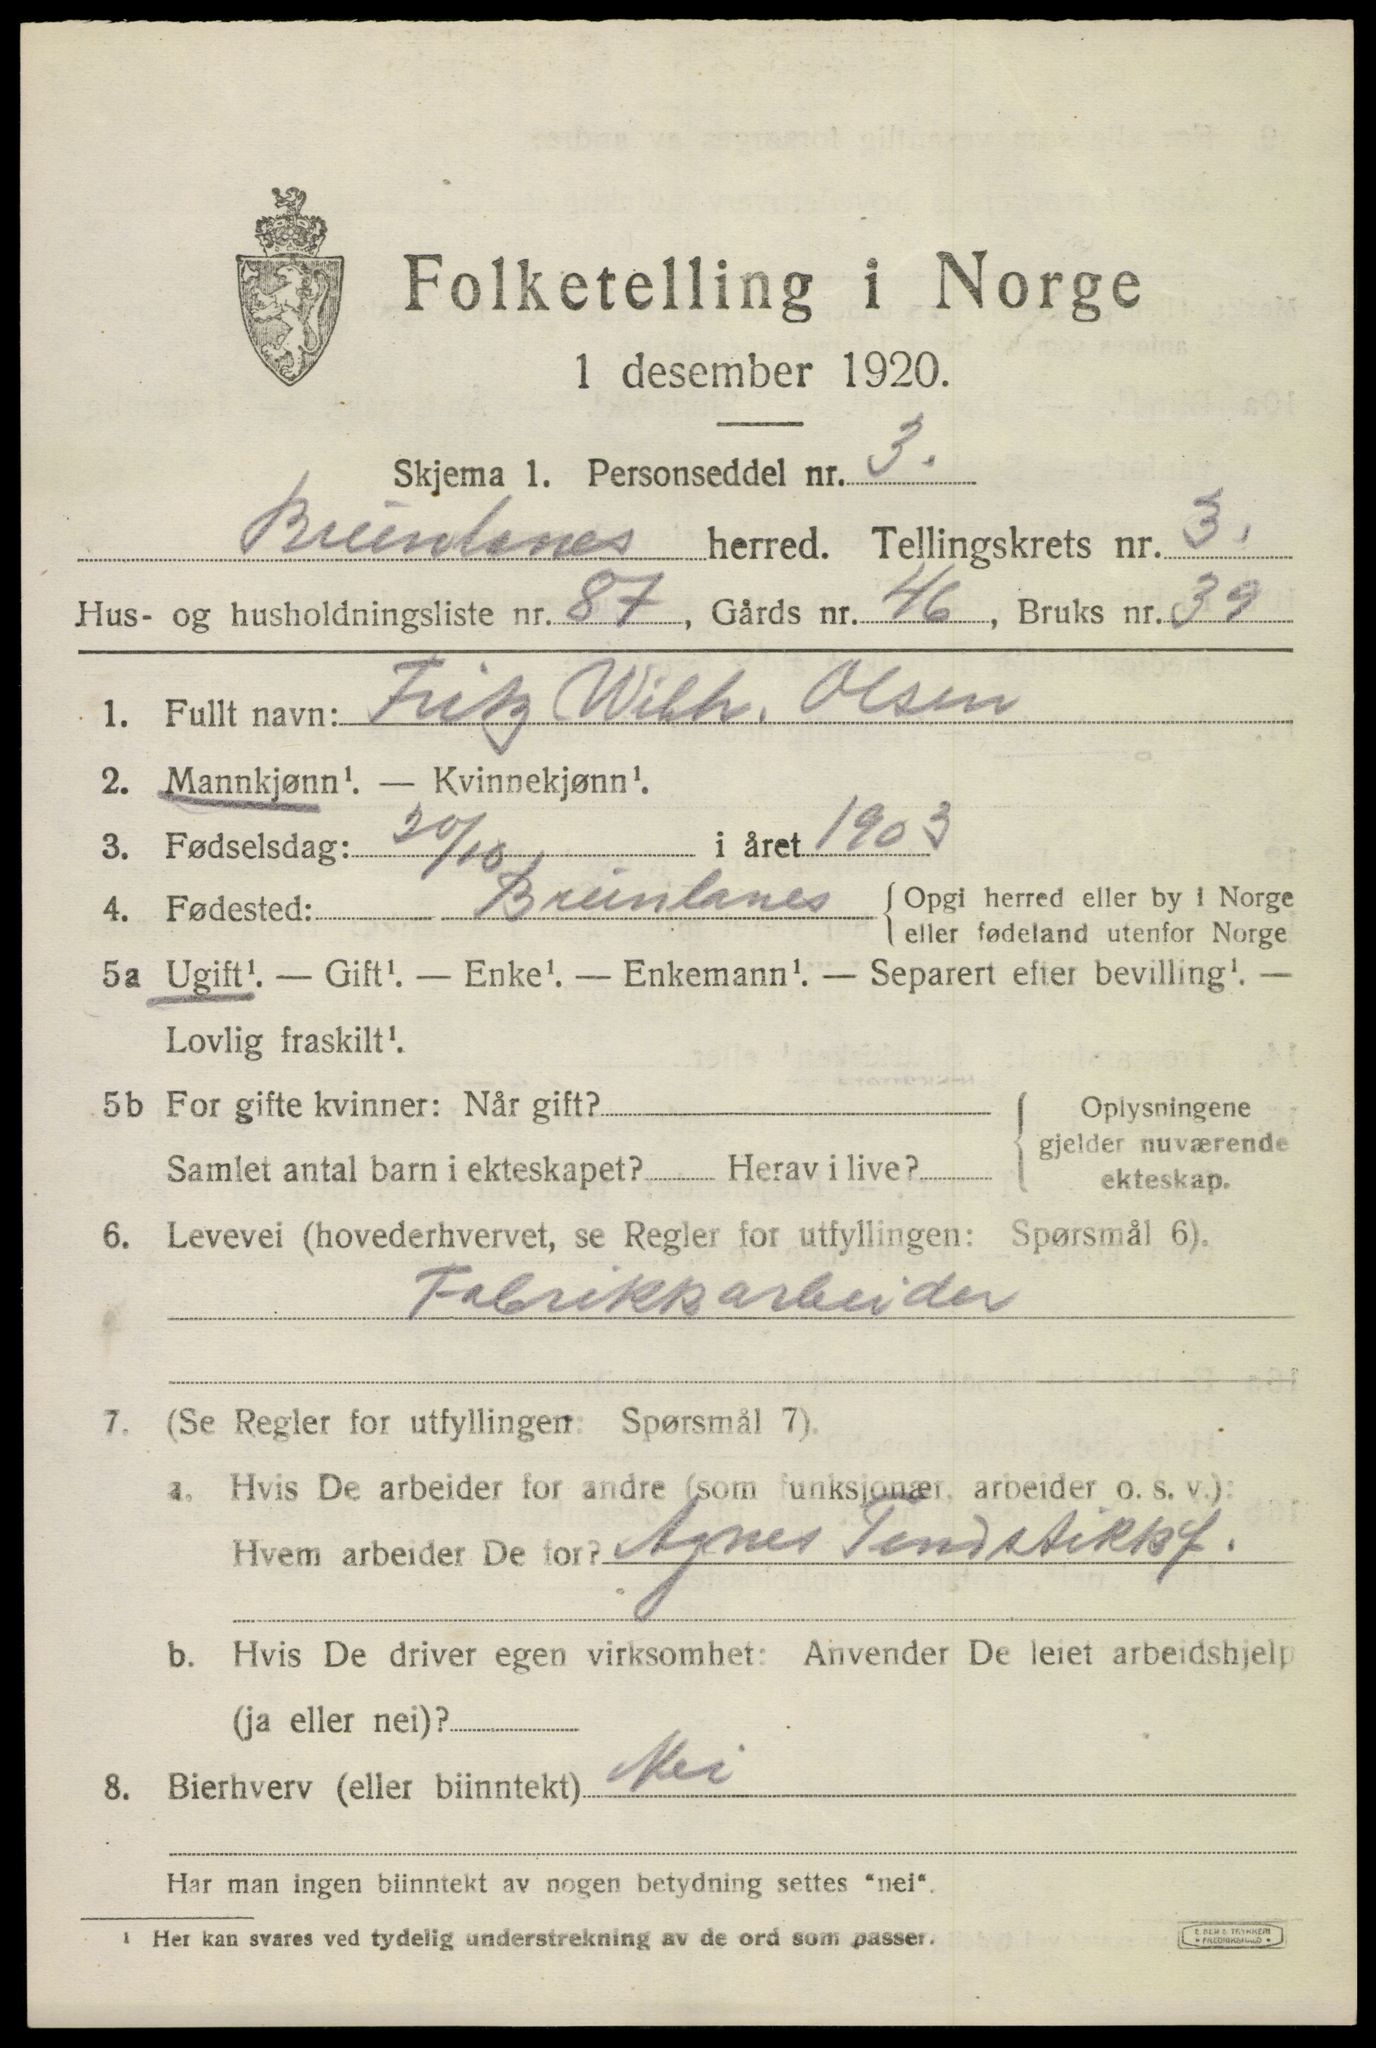 Folketelling i Norge
1 desember 1920.
Skjema 1. Personseddel nr. 3.
Brunlanes herred. Tellingskrets nr. 3.
Hus- og husholdningsliste nr. 87, Gårds nr. 46, Bruks nr. 39
1. Fullt navn: Fritz Wilh. Olsen
2. Mannkjønn¹. — Kvinnekjønn¹.
3. Fødselsdag: 20/10 i året 1903
4. Fødested: Brunlanes { Opgi herred eller by i Norge
eller fødeland utenfor Norge
5a Ugift¹. — Gift¹. — Enke¹. — Enkemann¹. — Separert efter bevilling¹. —
Lovlig fraskilt¹.
5b For gifte kvinner: Når gift? { Oplysningene
gjelder nuværende
Samlet antal barn i ekteskapet? Herav i live? ekteskap.
6. Levevei (hovederhvervet, se Regler for utfyllingen: Spørsmål 6).
Fabrikkarbeider
7. (Se Regler for utfyllingen: Spørsmål 7).
a. Hvis De arbeider for andre (som funksjonær, arbeider o. s. v.):
Hvem arbeider De for? Agnes Tendstikkf.
b. Hvis De driver egen virksomhet: Anvender De leiet arbeidshjelp
(ja eller nei)?
8. Bierhverv (eller biinntekt) Nei
Har man ingen biinntekt av nogen betydning settes "nei".
¹ Her kan svares ved tydelig understrekning av de ord som passer.